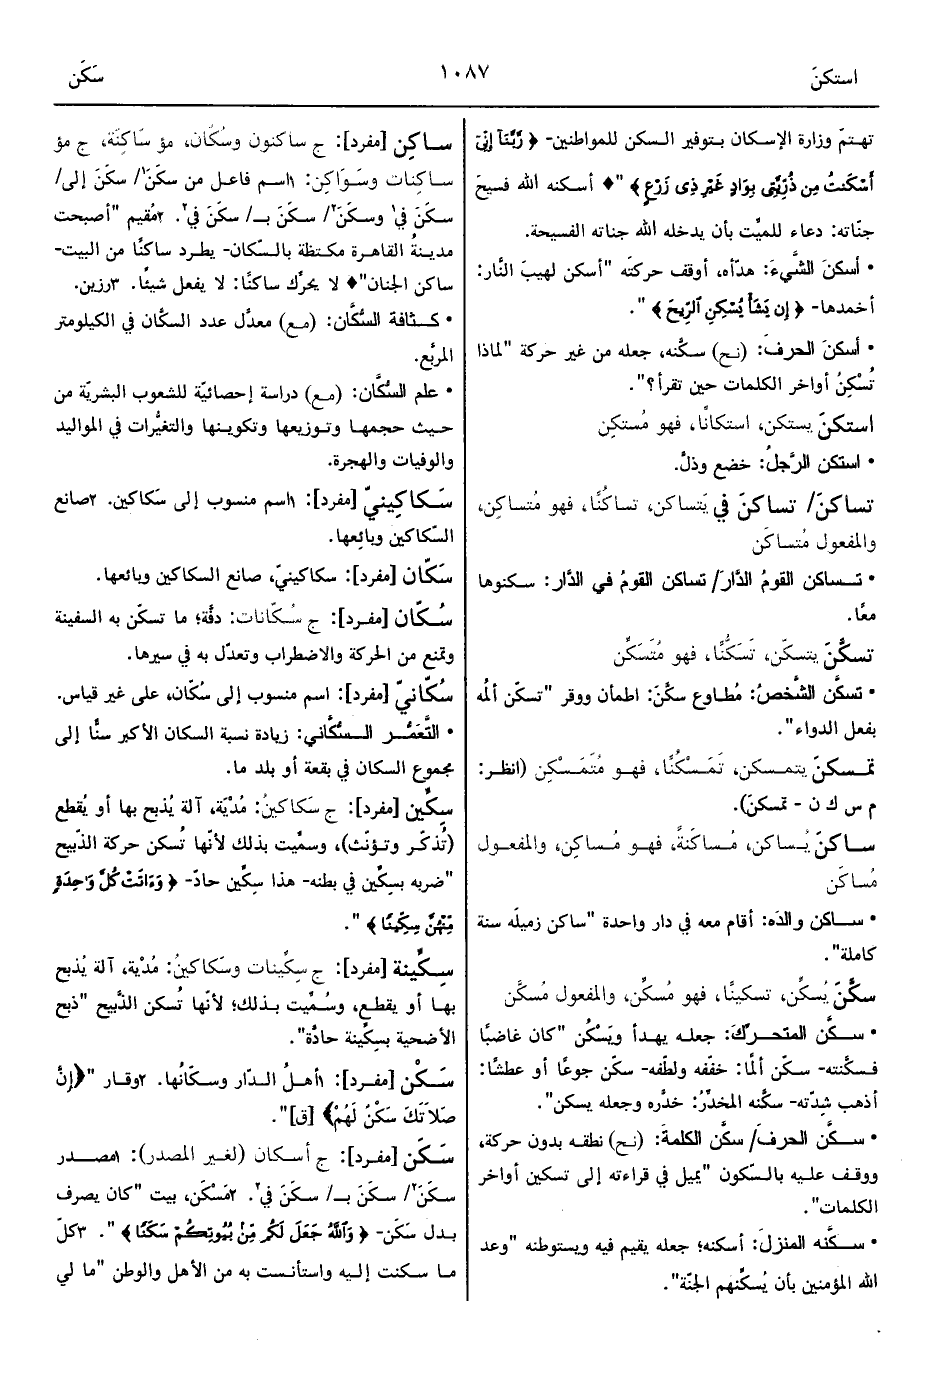 استكنّ
١٠٨٧
سَكَن
تهتمّ وزارة الإسكان بتوفير السكن للمواطنين- ﴿ رَّبَّنَآ إِنِّىٓ
أَسْكَنتُ مِن ذُرِّيَّتِى بِوَادٍ غَيْرِ ذِى زَرْعٍ ﴾ "♦ أسكنه الله فسيحَ
جنّاته: دعاء للميِّت بأن يدخله الله جناته الفسيحة.
• أسكنَ الشَّيءَ: هدّأه، أوقف حركتَه "أسكن لهيبَ النَّار:
أخمدها- ﴿ إِن يَشَأْ يُسْكِنِ ٱلرِّيحَ ﴾ ".
• أسكنَ الحرفَ: (نح) سكَّنه، جعله من غير حركة "لماذا
تُسْكِنُ أواخر الكلمات حين تقرأ؟".
استكنَّ يستكن، استكانًا، فهو مُستكِن
• استكن الرَّجلُ: خضع وذلّ.
تساكنَ/ تساكنَ في يَتساكن، تساكُنًا، فهو مُتساكِن،
والمفعول مُتساكَن
• تساكن القومُ الدَّارَ/ تساكن القومُ في الدَّار: سكنوها
معًا.
تسكَّنَ يتسكّن، تَسَكُّنًا، فهو مُتَسَكِّن
• تسكَّن الشَّخصُ: مُطاوع سكَّنَ: اطمأن ووقر "تسكّن ألمُه
بفعل الدواء".
تمسكنَ يتمسكن، تَمَسْكُنًا، فهو مُتَمَسْكِن (انظر:
م س ك ن - تمسكنَ).
ساكنَ يُساكن، مُساكنَةً، فهو مُساكِن، والمفعول
مُساكَن
• ساكن والدَه: أقام معه في دار واحدة "ساكن زميلَه سنة
كاملة".
سكَّنَ يُسكِّن، تسكينًا، فهو مُسكِّن، والمفعول مُسكَّن
• سكَّن المتحرِّكَ: جعله يهدأ ويَسْكُن "كان غاضبًا
فسكَّنته- سكّن ألمًا: خفّفه ولطّفه- سكّن جوعًا أو عطشًا:
أذهب شِدّته- سكّنه المخدّرُ: خدّره وجعله يسكن".
• سكَّن الحرفَ/ سكَّن الكلمةَ: (نح) نطقه بدون حركة،
ووقف عليه بالسّكون "يميل في قراءته إلى تسكين أواخر
الكلمات".
• سكَّنه المنزلَ: أسكنه؛ جعله يقيم فيه ويستوطنه "وعد
الله المؤمنين بأن يُسكِّنهم الجنّة".
ساكِن [مفرد]: ج ساكنون وسُكّان، مؤ سَاكِنَة، ج مؤ
ساكِنات وسَوَاكِن: ١اسم فاعل من سكَنَ١/ سكَنَ إلى/
سكَنَ في١ وسكَنَ٢/ سكَنَ بـ/ سكَنَ في٢. ٢مُقيم "أصبحت
مدينةُ القاهرة مكتظة بالسّكان- يطرد ساكنًا من البيت-
ساكن الجنان"♦ لا يحرّك ساكنًا: لا يفعل شيئًا. ٣رزين.
• كثافة السُّكَّان: (مع) معدّل عدد السكّان في الكيلومتر
المربَّع.
• علم السُّكَّان: (مع) دراسة إحصائيّة للشعوب البشريّة من
حيث حجمها وتوزيعها وتكوينها والتغيُّرات في المواليد
والوفيات والهجرة.
سَكاكِينيّ [مفرد]: ١اسم منسوب إلى سَكاكين. ٢صانع
السّكاكين وبائِعها.
سَكّان [مفرد]: سكاكينيّ، صانع السكاكين وبائعها.
سُكّان [مفرد]: ج سُكّانات: دفَّة؛ ما تسكّن به السفينة
وتمنع من الحركة والاضطراب وتعدّل به في سيرها.
سُكّانيّ [مفرد]: اسم منسوب إلى سُكّان، على غير قياس.
• التَّعمُّر السُّكَّاني: زيادة نسبة السكان الأكبر سنًّا إلى
مجموع السكان في بقعة أو بلد ما.
سِكِّين [مفرد]: ج سَكاكينُ: مُدْيَة، آلة يُذبح بها أو يُقطع
(تُذكّر وتؤنّث)، وسمِّيت بذلك لأنّها تُسكن حركة الذّبيح
"ضربه بسكِّين في بطنه- هذا سِكِّين حادّ- ﴿ وَءَاتَتْ كُلَّ وَٰحِدَةٍ
مِّنْهُنَّ سِكِّينًا ﴾ ".
سِكِّينة [مفرد]: ج سِكِّينات وسَكاكينُ: مُدْيَة، آلة يُذبح
بها أو يقطع، وسُمِّيت بذلك؛ لأنّها تُسكن الذَّبيح "ذبح
الأضحية بسِكِّينة حادَّة".
سَكْن [مفرد]: ١أهلُ الدّار وسكّانُها. ٢وقار "﴿إِنَّ
صَلاَتَكَ سَكْنٌ لَهُمْ﴾ [ق]".
سَكَن [مفرد]: ج أسكان (لغير المصدر): ١مصدر
سكَنَ٢/ سكَنَ بـ/ سكَنَ في٢. ٢مَسْكَن، بيت "كان يصرف
بدل سكَن- ﴿ وَٱللَّهُ جَعَلَ لَكُم مِّنۢ بُيُوتِكُمْ سَكَنًا ﴾ ". ٣كلّ
ما سكنت إليه واستأنست به من الأهل والوطن "ما لي